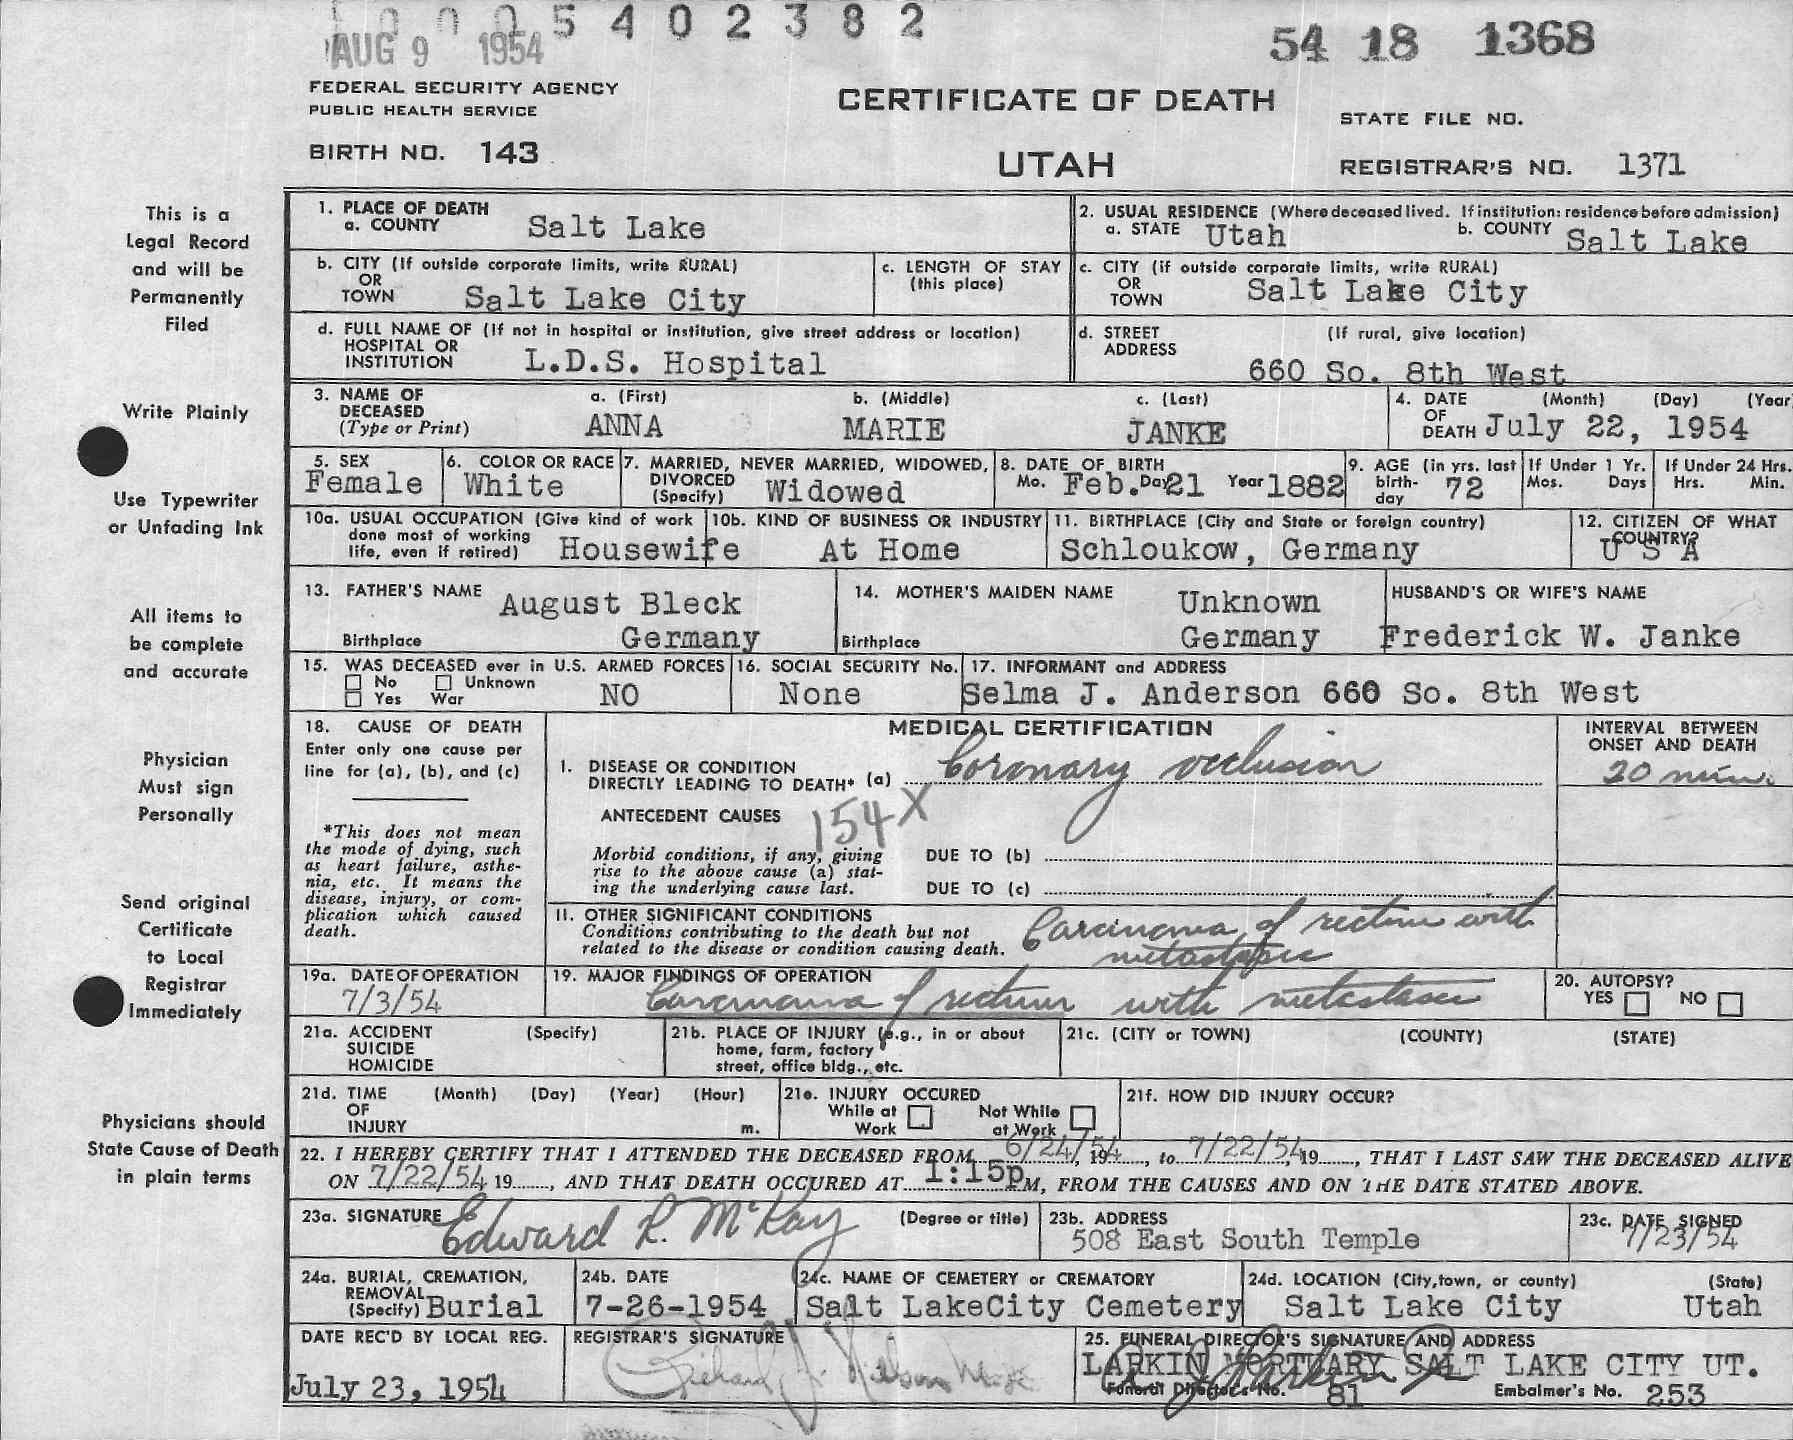 0005402382
AUG 9 1954
54 18 1368
FEDERAL SECURITY AGENCY
PUBLIC HEALTH SERVICE
CERTIFICATE OF DEATH
STATE FILE NO.
BIRTH NO. 143
UTAH
REGISTRAR'S NO. 1371
This is a
Legal Record
and will be
Permanently
Filed
Write Plainly
Use Typewriter
or Unfading Ink
All items to
be complete
and accurate
Physician
Must sign
Personally
Send original
Certificate
to Local
Registrar
Immediately
Physicians should
State Cause of Death
in plain terms
1. PLACE OF DEATH
a. COUNTY Salt Lake
2. USUAL RESIDENCE (Where deceased lived. If institution: residence before admission)
a. STATE Utah b. COUNTY Salt Lake
b. CITY (If outside corporate limits, write RURAL)
OR
TOWN Salt Lake City
c. LENGTH OF STAY
(this place)
c. CITY (if outside corporate limits, write RURAL)
OR
TOWN Salt Lake City
d. FULL NAME OF (If not in hospital or institution, give street address or location)
HOSPITAL OR
INSTITUTION L.D.S. Hospital
d. STREET (If rural, give location)
ADDRESS
660 So. 8th West
3. NAME OF a. (First) b. (Middle) c. (Last)
DECEASED
(Type or Print) ANNA MARIE JANKE
4. DATE (Month) (Day) (Year
OF
DEATH July 22, 1954
5. SEX
Female
6. COLOR OR RACE
White
7. MARRIED, NEVER MARRIED, WIDOWED,
DIVORCED
(Specify) Widowed
8. DATE OF BIRTH
Mo. Feb. Day 21 Year 1882
9. AGE (in yrs. last
birth-
day 72
If Under 1 Yr.
Mos. Days
If Under 24 Hrs.
Hrs. Min.
10a. USUAL OCCUPATION (Give kind of work
done most of working
life, even if retired) Housewife
10b. KIND OF BUSINESS OR INDUSTRY
At Home
11. BIRTHPLACE (City and State or foreign country)
Schloukow, Germany
12. CITIZEN OF WHAT
COUNTRY?
U S A
13. FATHER'S NAME August Bleck
Birthplace Germany
14. MOTHER'S MAIDEN NAME Unknown
Birthplace Germany
HUSBAND'S OR WIFE'S NAME
Frederick W. Janke
15. WAS DECEASED ever in U.S. ARMED FORCES
No Unknown
Yes War NO
16. SOCIAL SECURITY No.
None
17. INFORMANT and ADDRESS
Selma J. Anderson 660 So. 8th West
18. CAUSE OF DEATH
Enter only one cause per
line for (a), (b), and (c)
*This does not mean
the mode of dying, such
as heart failure, asthe-
nia, etc. It means the
disease, injury, or com-
plication which caused
death.
MEDICAL CERTIFICATION
I. DISEASE OR CONDITION
DIRECTLY LEADING TO DEATH* (a) Coronary occlusion
INTERVAL BETWEEN
ONSET AND DEATH
20 min.
ANTECEDENT CAUSES
154X
Morbid conditions, if any, giving
rise to the above cause (a) stat-
ing the underlying cause last.
DUE TO (b)
DUE TO (c)
II. OTHER SIGNIFICANT CONDITIONS
Conditions contributing to the death but not
related to the disease or condition causing death.
Carcinoma of rectum with
metastases
19a. DATE OF OPERATION
7/3/54
19. MAJOR FINDINGS OF OPERATION
Carcinoma of rectum with metastases
20. AUTOPSY?
YES NO
21a. ACCIDENT (Specify)
SUICIDE
HOMICIDE
21b. PLACE OF INJURY (e.g., in or about
home, farm, factory
street, office bldg., etc.
21c. (CITY or TOWN) (COUNTY) (STATE)
21d. TIME (Month) (Day) (Year) (Hour)
OF
INJURY m.
21e. INJURY OCCURED
While at Not While
Work at Work
21f. HOW DID INJURY OCCUR?
22. I HEREBY CERTIFY THAT I ATTENDED THE DECEASED FROM 6/24/54, 19......, to 7/22/54, 19......, THAT I LAST SAW THE DECEASED ALIVE
ON 7/22/54, 19......, AND THAT DEATH OCCURED AT 1:15p M, FROM THE CAUSES AND ON THE DATE STATED ABOVE.
23a. SIGNATURE Edward R. McKay (Degree or title)
23b. ADDRESS
508 East South Temple
23c. DATE SIGNED
7/23/54
24a. BURIAL, CREMATION,
REMOVAL
(Specify) Burial
24b. DATE
7-26-1954
24c. NAME OF CEMETERY or CREMATORY
Salt LakeCity Cemetery
24d. LOCATION (City, town, or county) (State)
Salt Lake City Utah
DATE REC'D BY LOCAL REG.
July 23, 1954
REGISTRAR'S SIGNATURE
Richard J. Nelson
25. FUNERAL DIRECTOR'S SIGNATURE AND ADDRESS
LARKIN MORTUARY SALT LAKE CITY UT.
Funeral Director's No. 81 Embalmer's No. 253